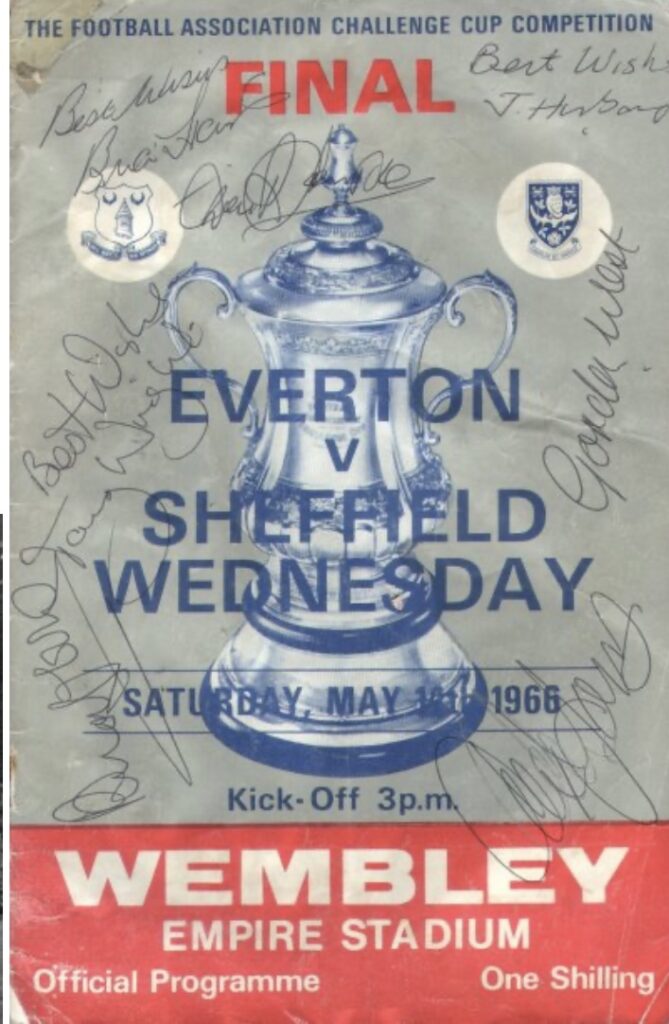 THE FOOTBALL ASSOCIATION CHALLENGE CUP COMPETITION
FINAL
Best Wishes
Best Wish
EVERTON
V
SHEFFIELD
WEDNESDAY
Best Wishes
Tommy Wright
Gordon West
SATURDAY, MAY 14th, 1966
Kick-Off 3p.m.
WEMBLEY
EMPIRE STADIUM
Official Programme
One Shilling